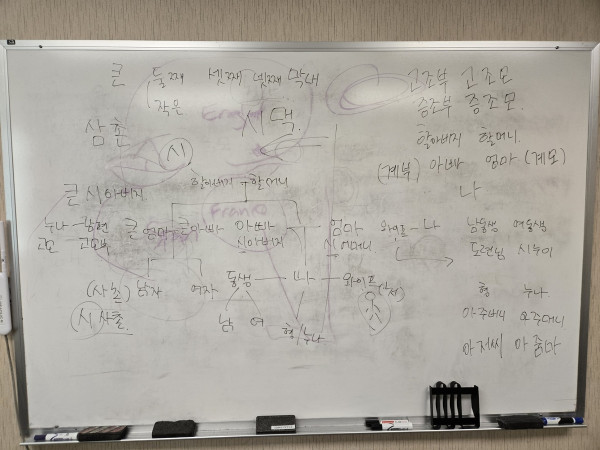 큰 둘째 셋째 넷째 막내
작은
삼촌
시댁
시
Franco
큰 시아버지
할아버지 할머니
Franco
누나
고모 고모부
큰엄마 큰아빠 아빠 엄마
시아버지 시어머니
와이프 나
(사촌) 남자 여자
동생 나 와이프
시 사촌
남 여
형/누나
고조부 고조모
증조부 증조모
할아버지 할머니
(계부) 아빠 엄마 (계모)
나
남동생 여동생
도련님 시누이
형 누나
아주버니
아저씨 아줌마